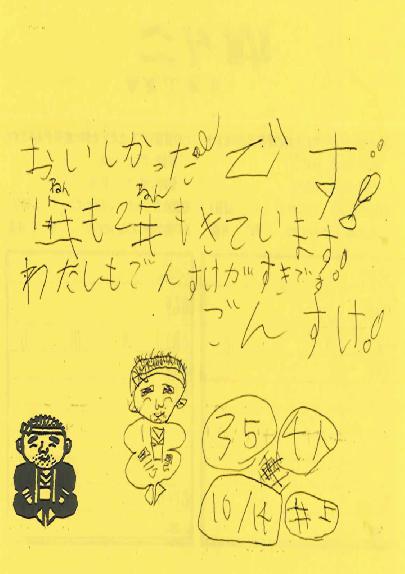 おいしかった!!です!!
ねん ねん
1年も2年もきています!!
わたしもごんすけがすきです!!
ごんすけ!!
35 4人
10/14